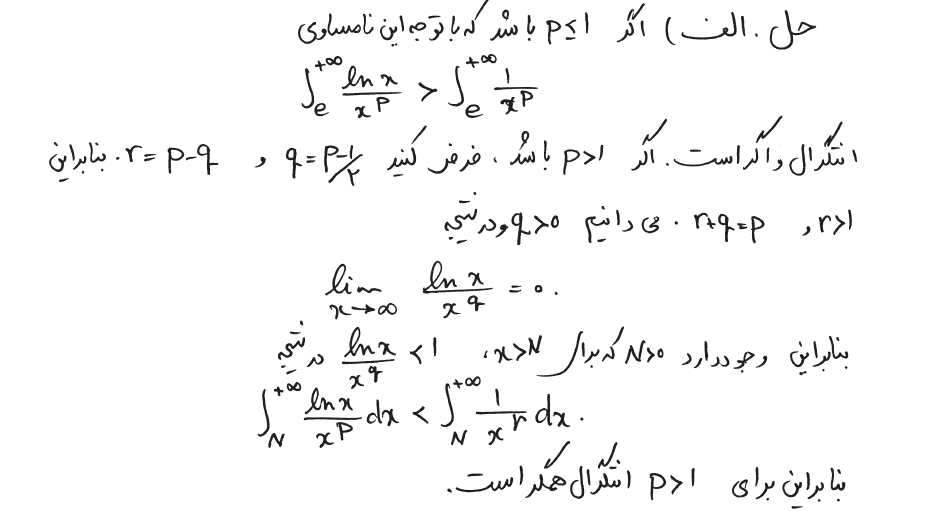 حل. الف) اگر p ≤ 1 باشد که با توجه این نامساوی
∫_e^{+∞} ln x / x^p > ∫_e^{+∞} 1 / x^p
انتگرال واگراست. اگر p>1 باشد، فرض کنید q = (p-1)/۲ و r = p-q. بنابراین
r>1 و r+q=p. می دانیم q>0 و در نتیجه
lim_{x→∞} ln x / x^q = 0.
بنابراین وجود دارد N>0 که برای x>N، ln x / x^q < 1 در نتیجه
∫_N^{+∞} ln x / x^p dx < ∫_N^{+∞} 1 / x^r dx.
بنابراین برای p>1 انتگرال همگراست.